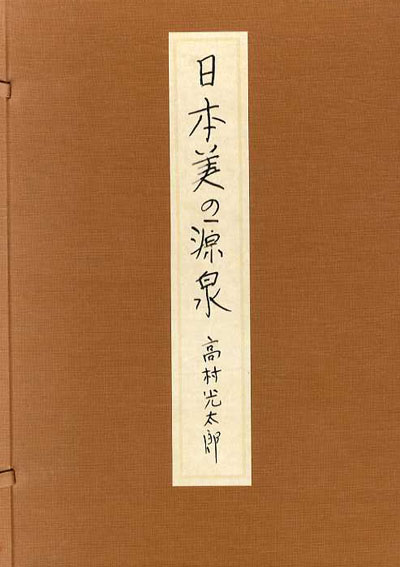 日本美の源泉
高村光太郎